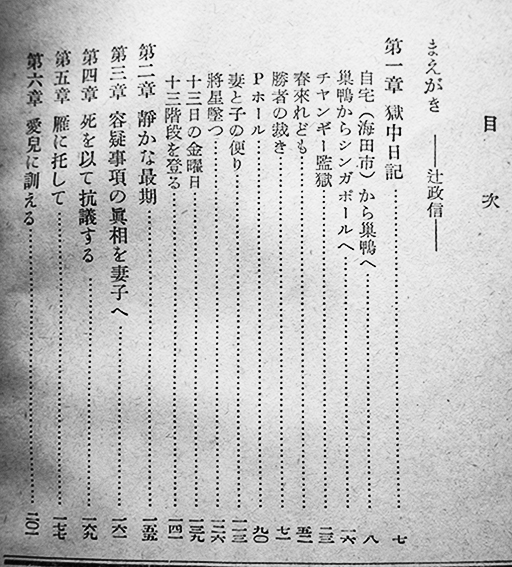 目次
まえがき ――辻政信――
第一章 獄中日記……七
自宅（海田市）から巣鴨へ……八
巣鴨からシンガポールへ……一六
チャンギー監獄……二三
春來れども……五二
勝者の裁き……七一
Pホール……九〇
妻と子の便り……一一三
將星墜つ……一二六
十三日の金曜日……一三九
十三階段を登る……一四一
第二章 靜かな最期……一五五
第三章 容疑事項の眞相を妻子へ……一六一
第四章 死を以て抗議する……一六九
第五章 雁に托して……一七七
第六章 愛兒に訓える……二〇一